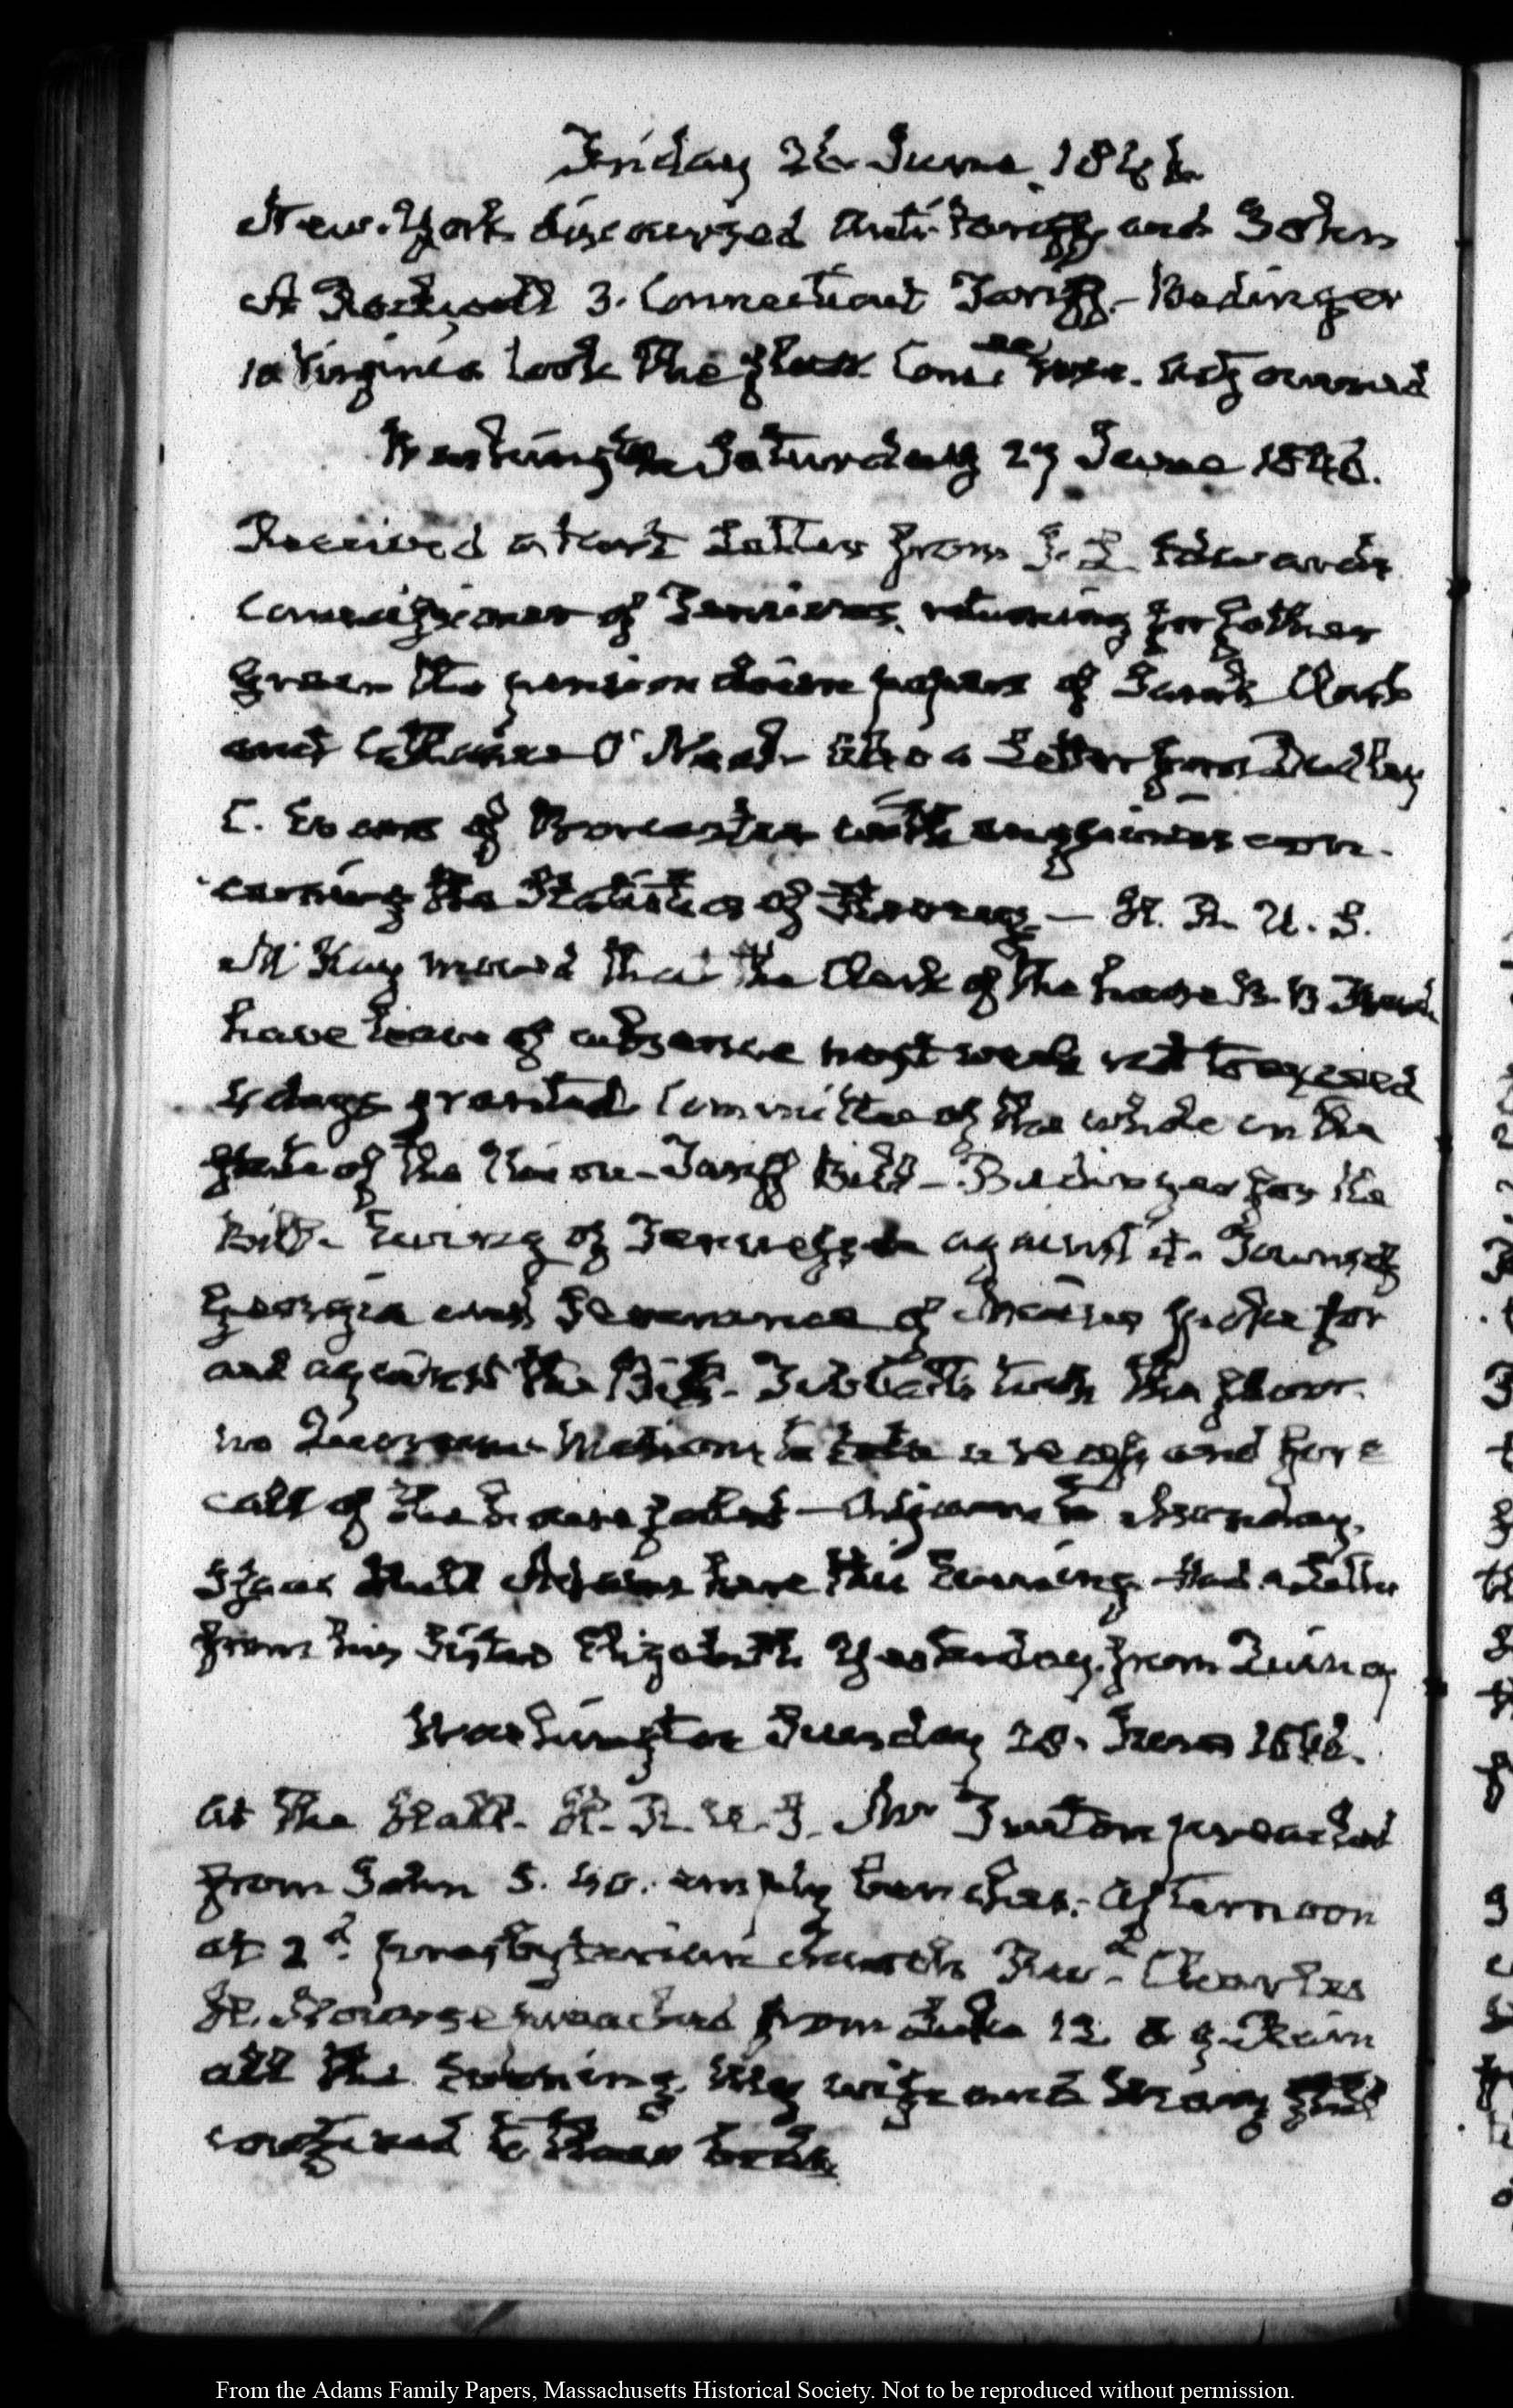 Friday 26 June 1846.
New-York discoursed anti-tariff, and John
A Rockwell 3. Connecticut Tariff.- Bedinger
10 Virginia took the floor. Comee rose. adjourned
Washington Saturday 27 June 1846.
Received a short Letter from J. L. Edwards
Commissioner of Pensions, returning for
the pension claim papers of Sarah Clark
and O'Neal- also a Letter from Dudley
C. Evans of Worcester with enquiries con-
cerning the Statistics of Slavery — H. R. U. S.
McKay moved that the Clerk of the house B. B French
have leave of absence next week not to exceed
days granted. Committee of the whole on the
state of the Union-Tariff Bill- Bedinger for the
Bill- Ewing of Tennessee against it. Towns of
Georgia and Severance of Maine spoke for
and against the Bill- Tibbatts took the floor.
no Quorum- Motions to take a recess and for a
call of the house failed — Adjourn to Monday.
Isaac Hull Adams here this Evening. Had a Letter
from his Sister Elizabeth Yesterday. from Quincy
Washington Sunday 28. June 1846.
at the Hall. H. R. U. S. Mr preached
from John 5. 40. empty benches. afternoon
at 2d. presbyterian church Revd. Charles
H. preached from Luke 12. 8 9. Rain
all the Evening. My wife and Mary still
confined to their beds
From the Adams Family Papers, Massachusetts Historical Society. Not to be reproduced without permission.